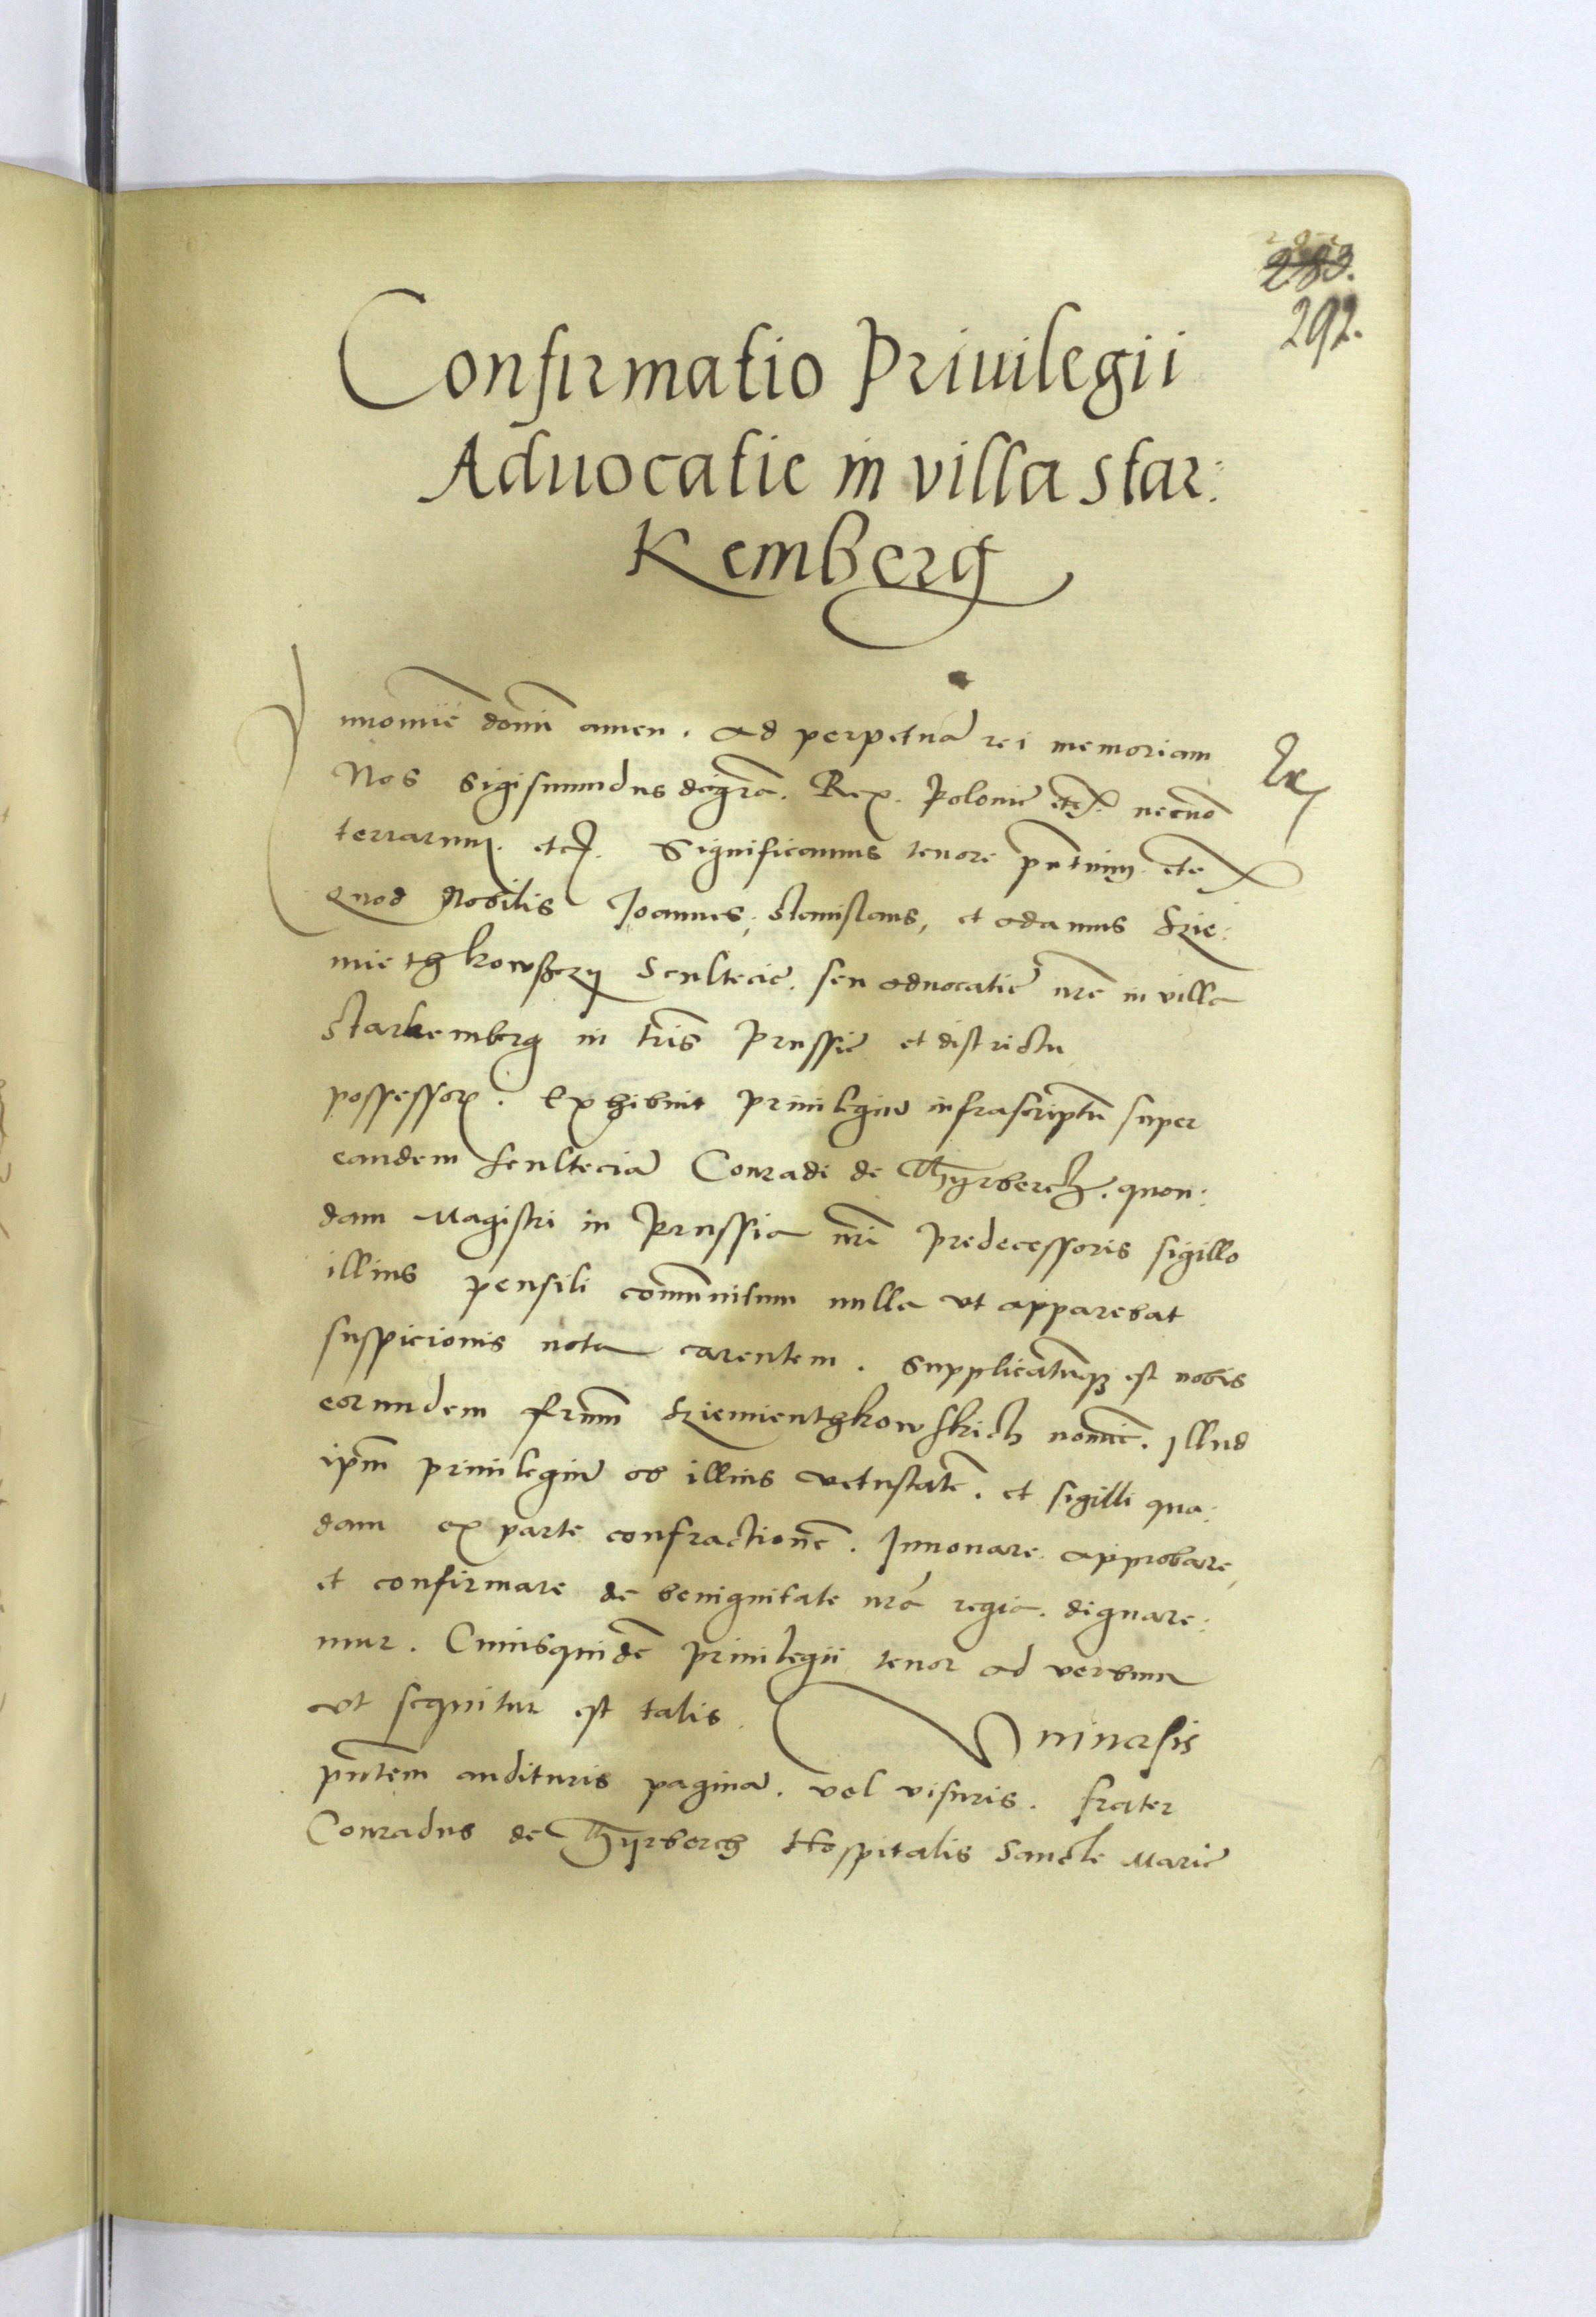 283.
292.
Confirmatio Priuilegii
Aduocatie in villa star:
Kemberg
In nomiē domī amen. Ad perpetuā rei memoriam
Nos Sigismundus dei grā. Rex. Polonie etc. necnō
terrarum. etc. Significamus tenore pntium. etc
Quod Nobilis Joannes, Stanislaus, et Adamus
Scultecie. seu aduocatie nrē in villa
Starkemberg in tris Prussie et districtu
possessor. Exhibuit priuilegiū infrascriptū super
eandem sculteciā Conradi de Thyrberch. quon:
dam Magistri in Prussia nri Predecessoris sigillo
illius pensili comunitum nulla vt apparebat
suspicionis nota carentem. Supplicatūqꝫ est nobis
eorundem frum Kziemienthkowskich nomīe. Illud
ipm priuilegiū ob illius vetustatē. et sigilli qua:
dam ex parte confractionē. Innouare. approbare,
et confirmare de benignitate nrā regia. dignare:
mur. Cuiusquidē priuilegii tenor ad verbum
vt sequitur est talis. Vniuersis
pntem audituris paginā. vel visuris. frater
Conradus de Thyrberch Hospitalis Sancte Marie